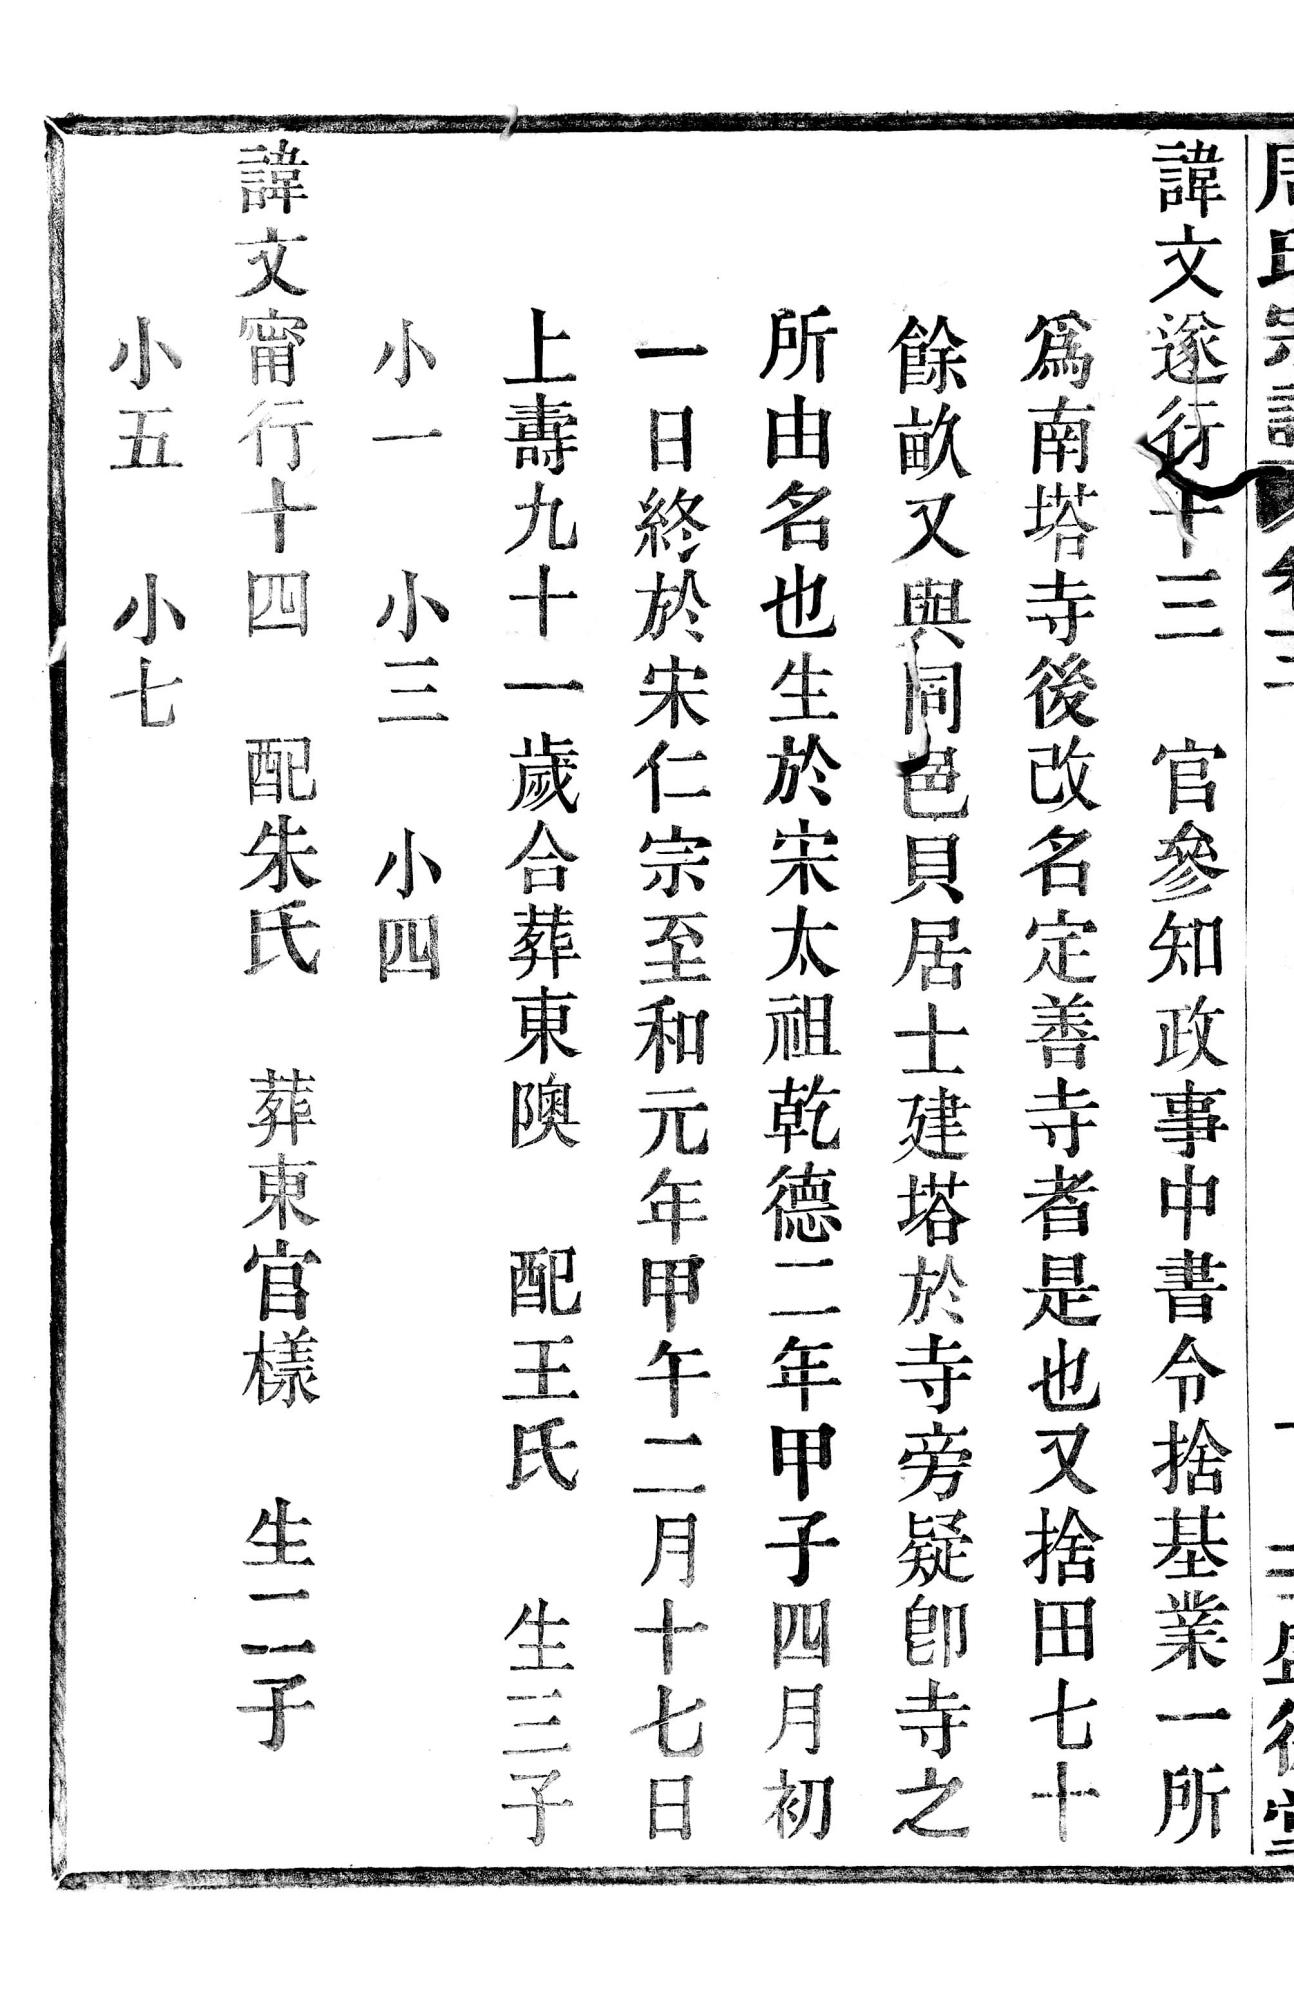 周氏宗譜 卷三 十三 盛德堂
諱文遂行十三 官參知政事中書令捨基業一所
爲南塔寺後改名定善寺者是也又捨田七十
餘畝又與同邑貝居士建塔於寺旁疑卽寺之
所由名也生於宋太祖乾德二年甲子四月初
一日終於宋仁宗至和元年甲午二月十七日
上壽九十一歲合葬東隩 配王氏 生三子
小一 小三 小四
諱文甯行十四 配朱氏 葬東官樣 生二子
小五 小七